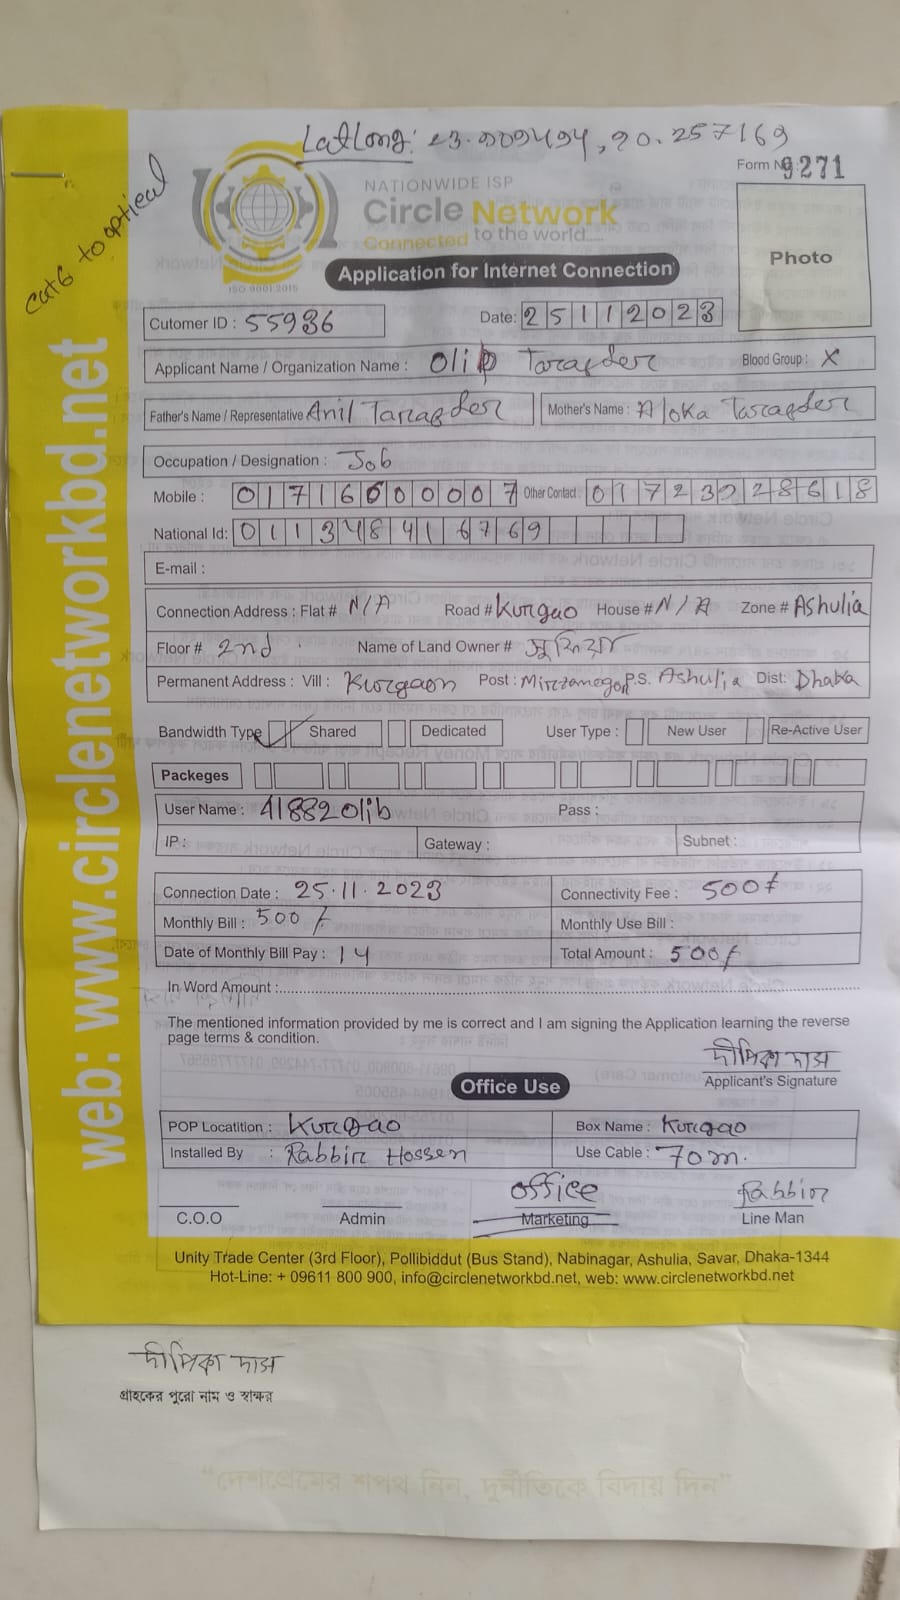 LatLong: 23.909454, 90.257169
Form No 9271
Cat6 to optical
NATIONWIDE ISP
Circle Network
Connected to the world.....
ISO 9001:2015
Application for Internet Connection
Photo
Cutomer ID : 55936
Date: 25112023
Applicant Name / Organization Name : Olip Tarafder
Blood Group : X
Father's Name / Representative Anil Tarafder
Mother's Name : Aloka Tarafder
Occupation / Designation : Job
Mobile : 01716600007 Other Contact : 01723928618
National Id: 01134841 6769
E-mail :
Connection Address : Flat # N/A Road # Kurgao House # N/A Zone # Ashulia
Floor # 2nd Name of Land Owner #
Permanent Address : Vill : Kurgaon Post : Mirzanagar P.S. Ashulia Dist: Dhaka
Bandwidth Type Shared Dedicated User Type : New User Re-Active User
Packeges
User Name : 41882olib Pass :
IP : Gateway : Subnet :
Connection Date : 25.11.2023 Connectivity Fee : 500/
Monthly Bill : 500/ Monthly Use Bill :
Date of Monthly Bill Pay : 14 Total Amount : 500/
In Word Amount :
The mentioned information provided by me is correct and I am signing the Application learning the reverse
page terms & condition.
দীপিকা দাস
Applicant's Signature
Office Use
POP Locatition : Kurgao Box Name : Kurgao
Installed By : Rabbir Hossen Use Cable : 70m.
office Rabbir
C.O.O Admin Marketing Line Man
Unity Trade Center (3rd Floor), Pollibiddut (Bus Stand), Nabinagar, Ashulia, Savar, Dhaka-1344
Hot-Line: + 09611 800 900, info@circlenetworkbd.net, web: www.circlenetworkbd.net
web: www.circlenetworkbd.net
দীপিকা দাস
গ্রাহকের পুরো নাম ও স্বাক্ষর
"দেশপ্রেমের শপথ নিন, দুর্নীতিকে বিদায় দিন"